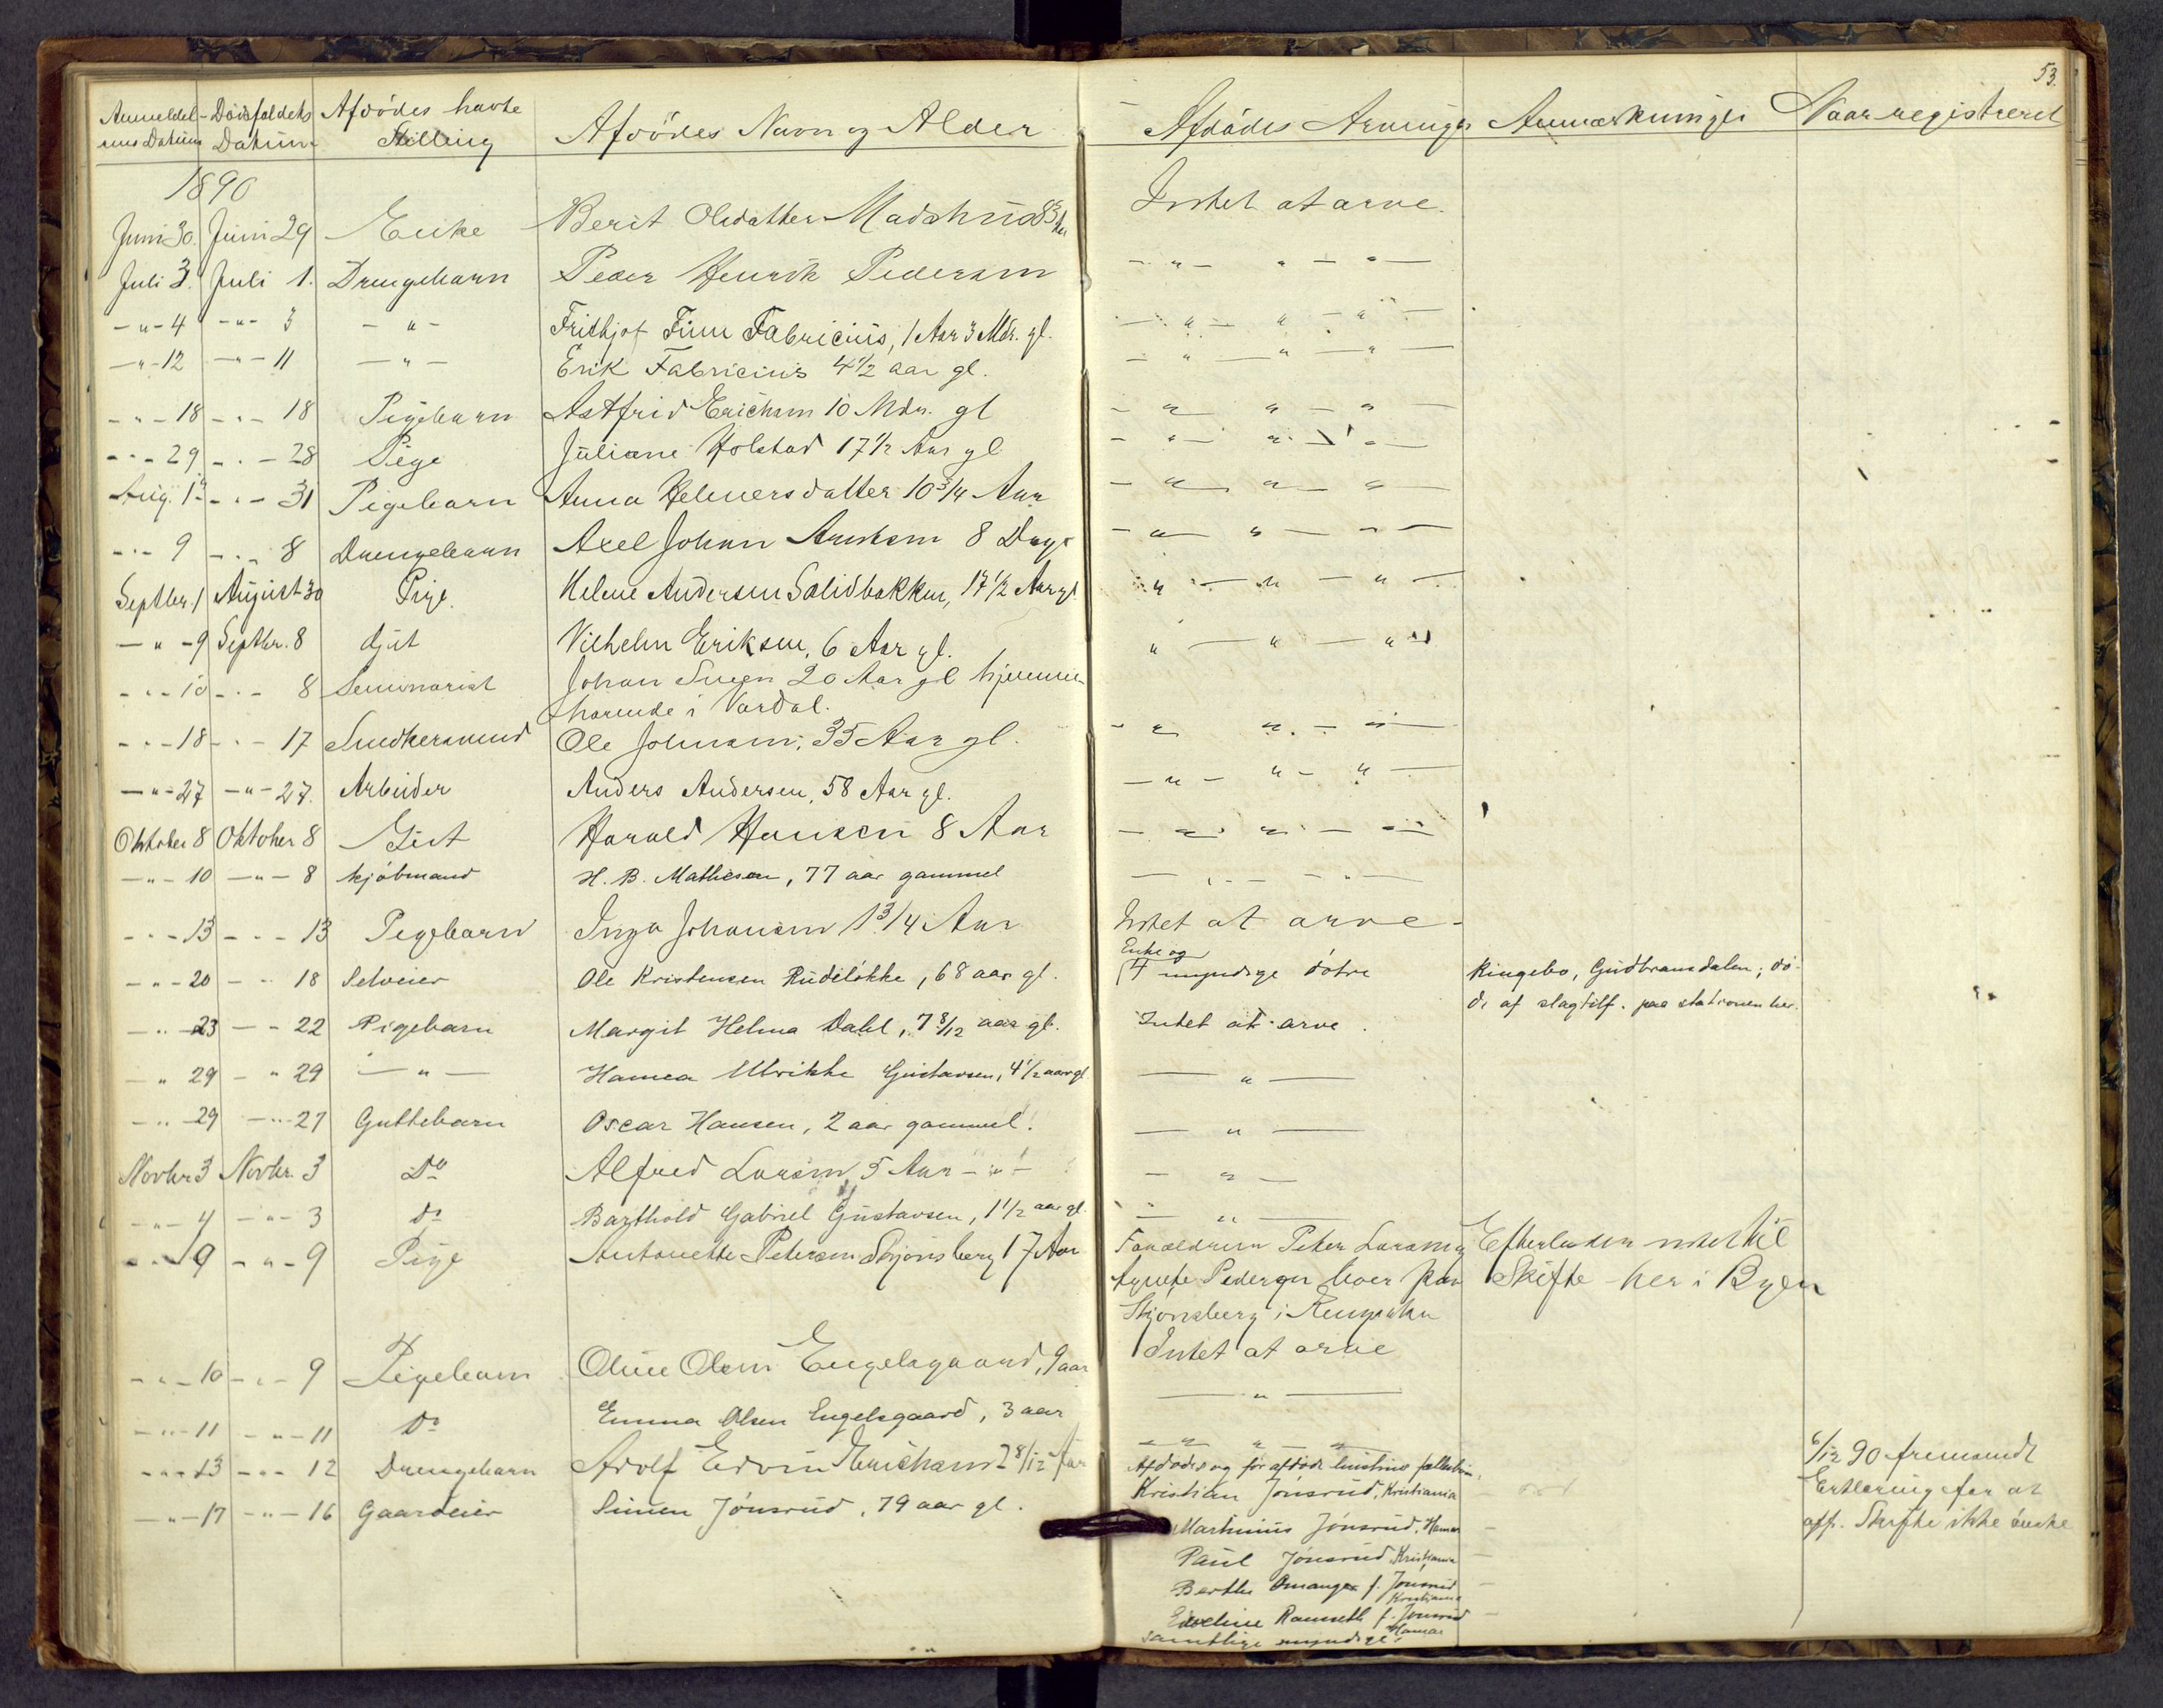 53.
Anmeldel- Dödsfaldets Afdödes havte Afdödes Navn og Alder Afdödes Arvinger Anmærkninger Naar registreret
sens Datum Datum Stilling
1890
Juni 30. Juni 29 Enke Berit Olsdatter 83 Intet at arve.
Juli 3. Juli 1. Drengebarn Peder Henrik Pedersen - " - " - " -
- " - 4 - " - 3 - " - Frithjof Finn Fabricius, 1 Aar 3 Mdr. gl. - " - " - " -
- " - 12 - " - 11 - " - Erik Fabricius 4 1/2 aar gl. - " - " - " -
- " - 18 - " - 18 Pigebarn Astfrid Erichsen 10 Mdr. gl - " - " - " -
- " - 29 - " - 28 Pige Juliane Holstad 17 1/2 Aar gl - " - " - " -
Aug. 1 - " - 31 Pigebarn Anna Helmersdatter 10 3/4 Aar - " - " - " -
- " - 9 - " - 8 Drengebarn Axel Johan 8 Dage - " - " - " -
Septbr. 1 August 30 Pige. Helene Andersen Solidbakken, 17 1/2 Aar gl " - " - " -
- " - 9 Septbr. 8 Gjut Vilhelm Eriksen, 6 Aar gl. " - " - " -
- " - 10 - " - 8 Seminarist Johan 20 Aar gl hjemme-
hørende i Vardal.
- " - 18 - " - 17 Snedkersvend Ole Johnsen, 35 Aar gl. - " - " - " -
- " - 27 - " - 27. Arbeider Anders Andersen, 58 Aar gl. - " - " - " -
Oktober 8 Oktober 8 Gut Harald Hansen 8 Aar - " - " - " -
- " - 10 - " - 8 Kjöbmand H. B. Mathiesen, 77 aar gammel - " - " -
- " - 13 - " - 13 Pigebarn Inga Johansen 1 3/4 Aar Intet at arve -
Enke og
- " - 20 - " - 18 Selveier Ole Kristensen Rudelökke, 68 aar gl. 4 myndige dötre Ringebo, Gudbrandsdalen; dö-
de af slagtilf. paa stationen her.
- " - 23 - " - 22 Pigebarn Margit Helma Dahl, 7 8/12 aar gl. Intet at arve.
- " 29 - " 29 - " - Hanna Ulrikke Gustavsen, 4 1/2 aar gl - " -
- " - 29 - " - 27 Guttebarn Oscar Hansen, 2 aar gammel. - " -
Novbr 3 Novbr. 3 Do Alfred Larsen, 5 Aar - " - - " -
- " - 4 - " - 3 Do Barthold Gabriel Gustavsen, 1 1/2 aar gl. - " -
- " - 9 - " - 9 Pige Antonette Petersen Skjonsberg 17 Aar Forældrene Peter Larsen og Efterlader intet til
Agnete Pedersen boer paa Skifte her i Byen
Skjonsberg i Ringsaker
- " - 10 - " - 9 Pigebarn Oline Olsen Engelsgaard, 9 aar Intet at arve
- " - 11 - " - 11 Do Emma Olsen Engelsgaard, 3 aar - " -
- " - 13 - " - 12 Drengebarn Adolf Edvin Erichsen 2 8/12 Aar - " - " - " -
- " - 17 - " - 16 Gaardeier Simen Jönsrud, 79 aar gl. Afdödes og för afdöde hustrus
Kristian Jönsrud, Kristiania
Martinius Jönsrud, Hamar
Paul Jönsrud, Kristiania
Berthe f. Jönsrud
Kristiania
Eveline Ramseth f. Jönsrud
Hamar
samtlige myndige.
6/12 90 fremsendt
Erklæring for at
off. Skifte ikke önske